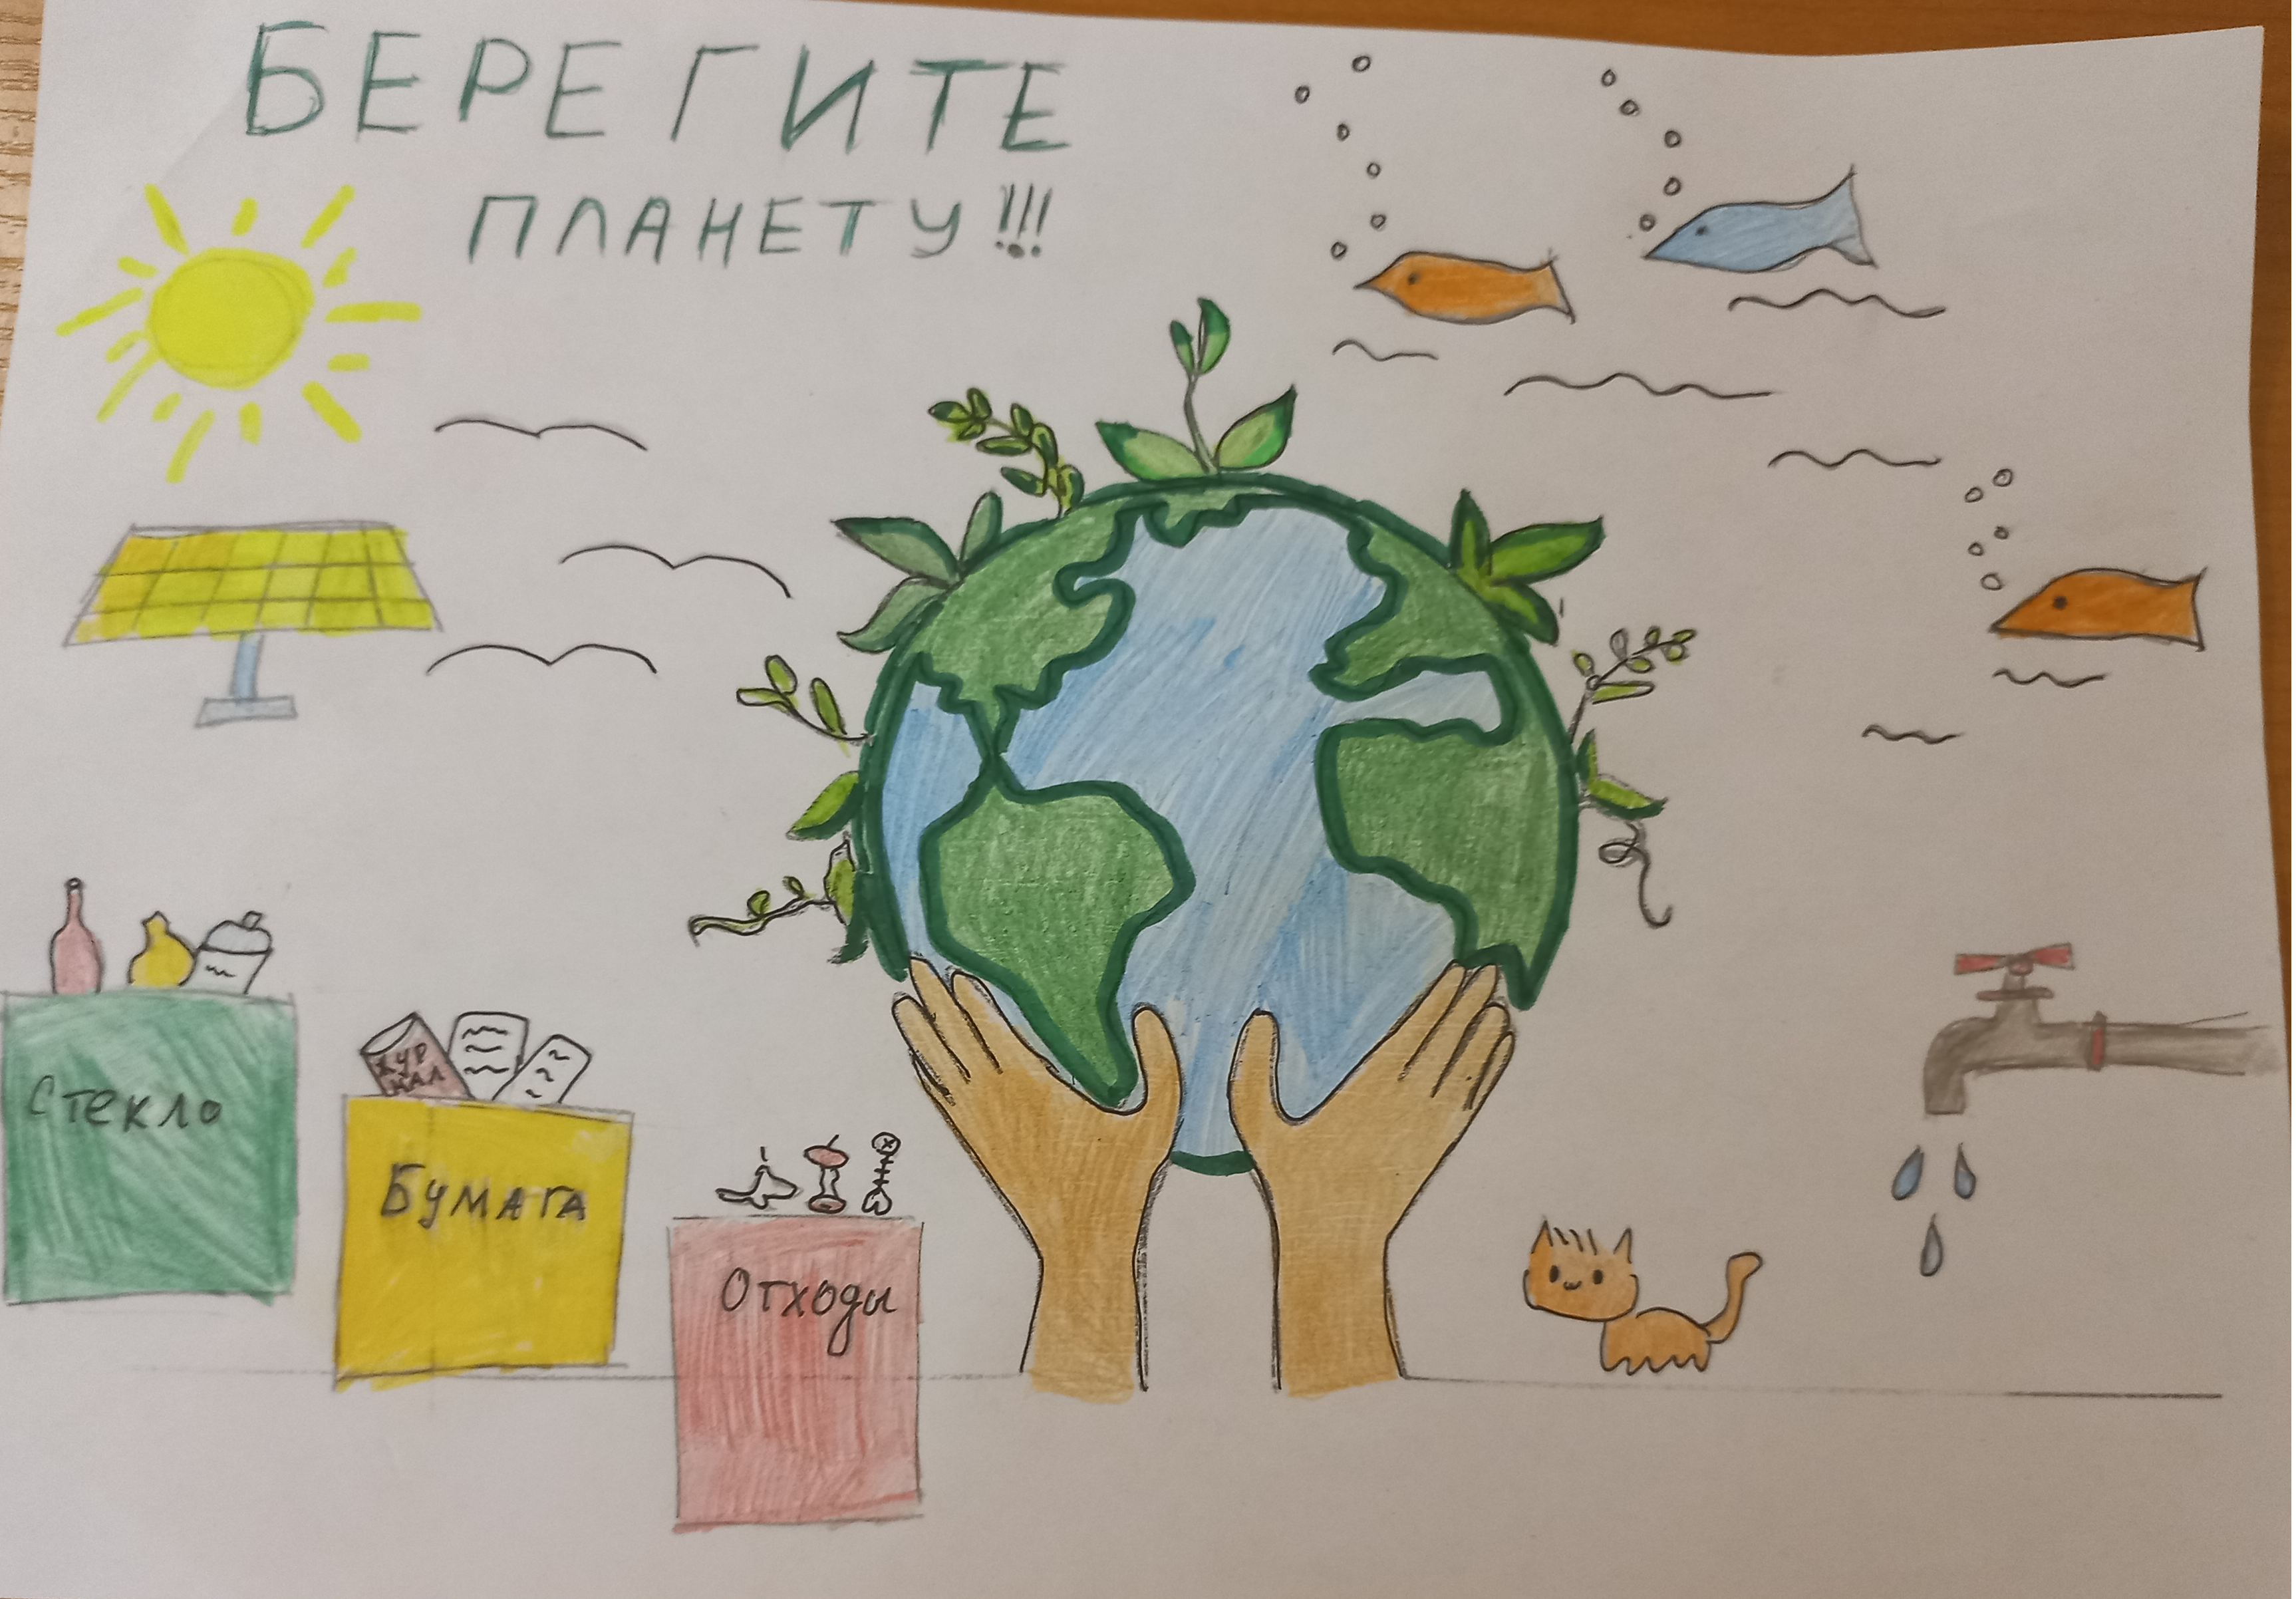 БЕРЕГИТЕ
ПЛАНЕТУ!!!
Стекло
ЖУР
НАЛ
Бумага
Отходы